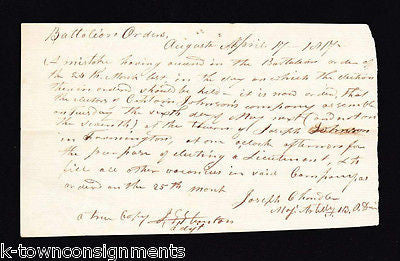 Battalion Orders,
Augusta April 17 1817
A mistake having occured in the Battalion order of
the 24th March last, in the day on which the election
therein ordered should be held it is now ordered, that
the electors of Captain Johnson's company assemble
on tuesday the sixth day of May next (and not on
the seventh) at the of Joseph Johnson
in Farmington, at one oClock afternoon for
the purpose of electing a Lieutenant, & to
fill all other vacancies in said Company as
ordered on the 25th
Joseph Chandler
Maj. Artillery
a true Copy
Adjt
k-townconsignments